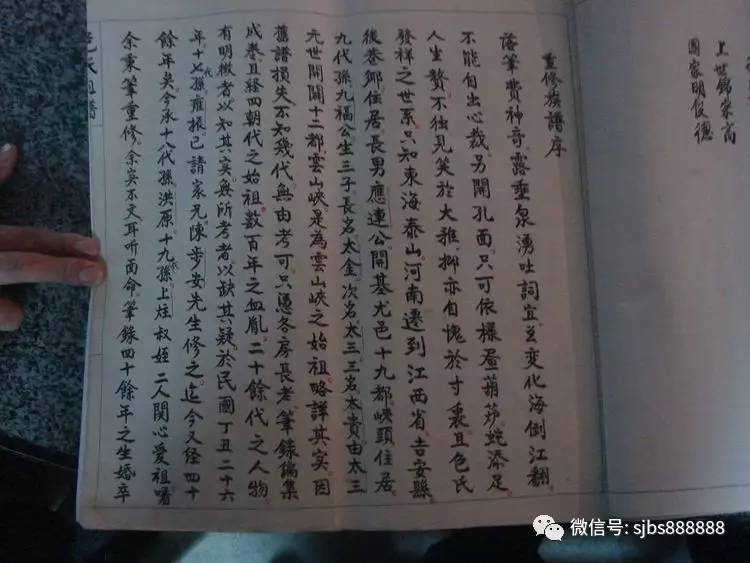 上世錦榮高
國家明俊德
重修族譜序
落筆費神奇露垂泉湧吐詞宜乎变化海倒江翻
不能自出心裁另開孔面只可依樣画葫芦蛇添足
人生贅不独見笑於大雅抑亦自愧於寸衷且色氏
發祥之世系只知東海泰山河南遷到江西省吉安縣
後巷鄉住居長男應連公開基尤邑十九都峽頭住居
九代孫九福公生三子長名太金次名太三三名太貴由太三
元世開闢十二都雲山峽是為雲山峽之始祖略詳其实因
舊譜損失不知幾代無由考可只憑各房長老筆錄編集
成卷且经四朝代之始祖数百年之血胤二十餘代之人物
有明徵者以知其实無所考者以缺其疑於民國丁丑二十六
年十七代孫雍振已請家兄陳步安先生修之迄今又经四十
餘年矣今承十八代孫洪原十九代孫上炷叔姪二人関心爱祖囑
余秉筆重修余实不文耳听面命筆錄四十餘年之生婚卒
氏族譜
微信号: sjbs888888